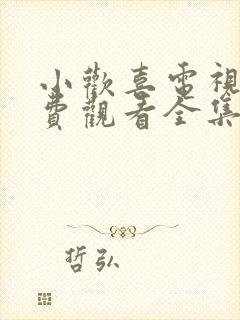 小歡喜電視
費觀看全集
哲弘